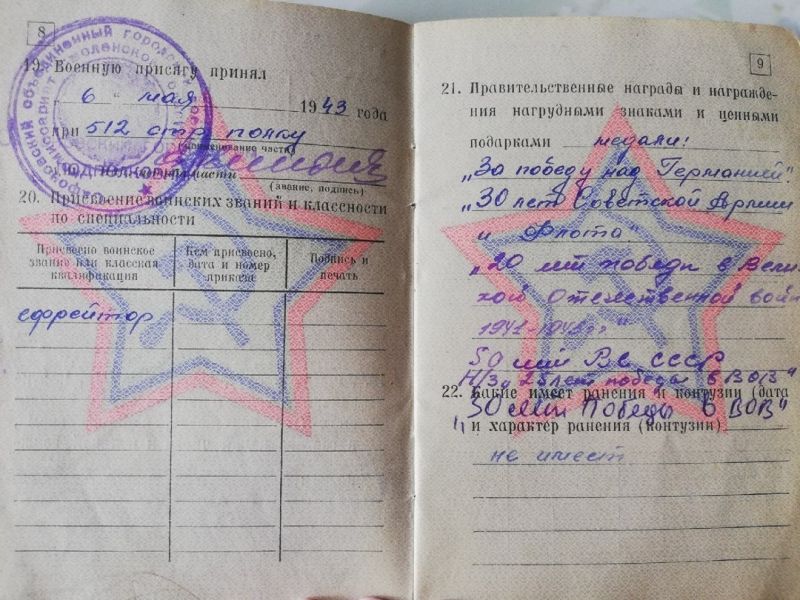 8
19. Военную присягу принял
"6" мая 1943 года
при 512 стр. полку
(наименование части)
ПОДПОЛКОВНИК
(звание, подпись)
20. Присвоение воинских званий и классности
по специальности
Присвоено воинское звание или классная квалификация
Кем присвоено, дата и номер приказа
Подпись и печать
ефрейтор
9
21. Правительственные награды и награжде-
ния нагрудными знаками и ценными
подарками медали:
„За победу над Германией"
„30 лет Советской Армии
и Флота"
„20 лет победы в Вели-
кой Отечественной войне
1941-1945 гг"
50 лет ВС СССР
Н/Зн 25 лет победы в ВОВ"
22. Какие имеет ранения и контузии (дата
„30 лет Победы в ВОВ"
и характер ранения (контузии)
не имеет